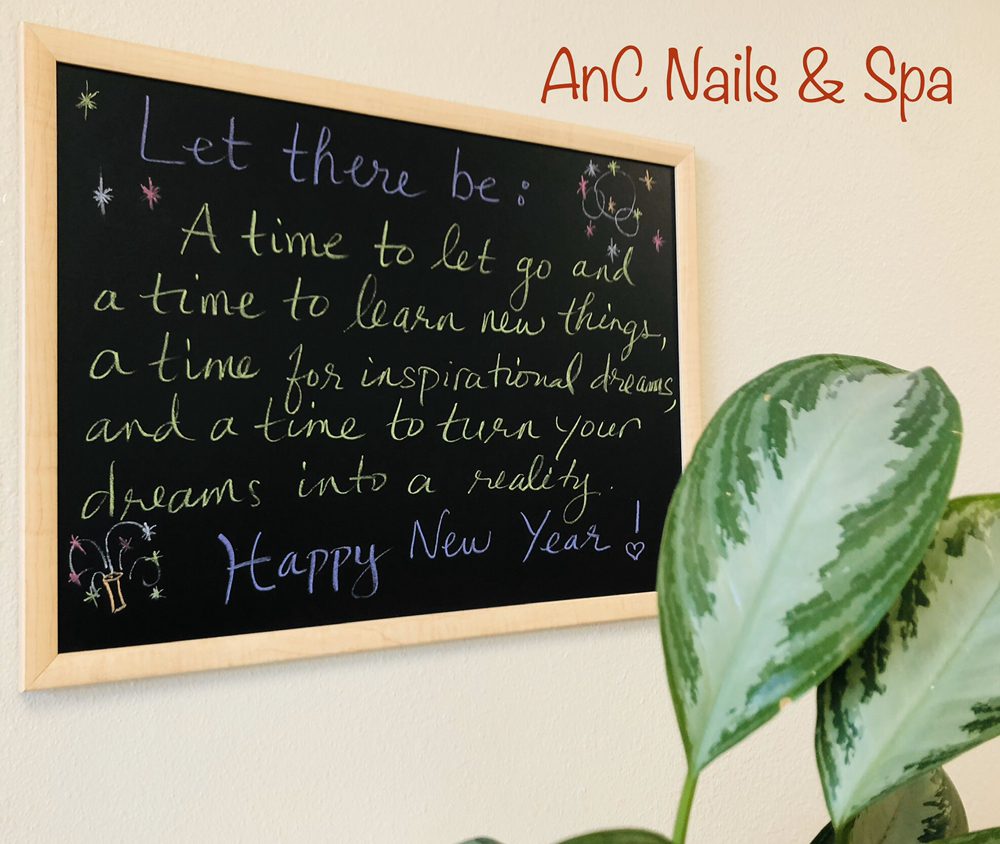 AnC Nails & Spa
Let there be:
A time to let go and
a time to learn new things,
a time for inspirational dreams,
and a time to turn your
dreams into a reality.
Happy New Year!